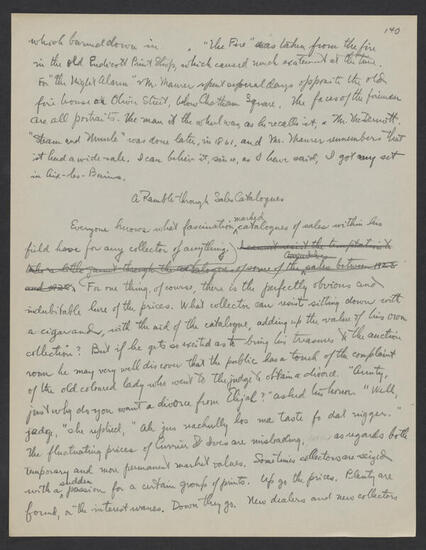 140
which burned down in . "The Fire" was taken from the fire
in the old Endicott Print Shop, which caused much excitement at the time.
For "the Night Alarm" Mr. Maurer spent several days opposite the old
fire house on Oliver Street, below Chatham Square. The faces of the firemen
are all portraits. The man at the wheel was, as he recalls it, a Mr. McDermott.
"Steam and Muscle" was done later, in 1861, and Mr. Maurer remembers that
it had a wide sale. I can believe it, since, as I have said, I got my set
in Aix-les-Bains.
A Ramble through Sales Catalogues
Everyone knows what fascination marked catalogues of sales within his
field have for any collector of anything. I cannot resist the temptation to
take a little jaunt through the catalogues of some of the sales between 1928
and For one thing, of course, there is the perfectly obvious and
indubitable lure of the prices. What collector can resist sitting down with
a cigar and, with the aid of the catalogue, adding up the value of his own
collection? But if he gets so excited as to bring his treasures to the auction
room he may very well discover that the public has a touch of the complaint
of the old coloured lady who went to the judge to obtain a divorce. "Aunty,
just why do you want a divorce from Elijah?" asked his honor. "Well,
jadge," she replied, "Ah jus nachully has ma taste fo dat nigger."
The fluctuating prices of Currier & Ives are misleading, as regards both
temporary and more permanent market values. Sometimes collectors are seized
with a sudden passion for a certain group of prints. Up go the prices. Plenty are
found, or the interest wanes. Down they go. New dealers and new collectors